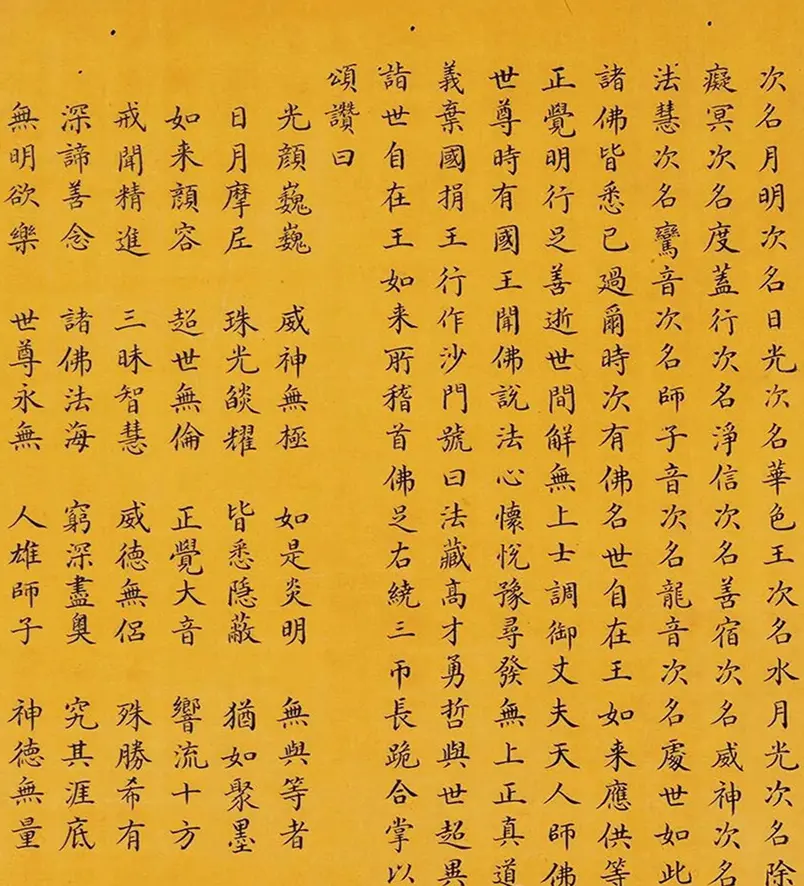 次名月明次名日光次名華色王次名水月光次名除
癡冥次名度蓋行次名淨信次名善宿次名威神次名
法慧次名鸞音次名師子音次名龍音次名處世如此
諸佛皆悉已過爾時次有佛名世自在王如来應供等
正覺明行足善逝世間解無上士調御丈夫天人師佛
世尊時有國王聞佛說法心懷悅豫尋發無上正真道
義棄國捐王行作沙門號曰法藏高才勇哲與世超異
詣世自在王如来所稽首佛足右繞三帀長跪合掌以
頌讚曰
光顏巍巍 威神無極 如是炎明 無與等者
日月摩尼 珠光燄耀 皆悉隱蔽 猶如聚墨
如来顏容 超世無倫 正覺大音 響流十方
戒聞精進 三昧智慧 威德無侣 殊勝希有
深諦善念 諸佛法海 窮深盡奧 究其涯底
無明欲樂 世尊永無 人雄師子 神德無量